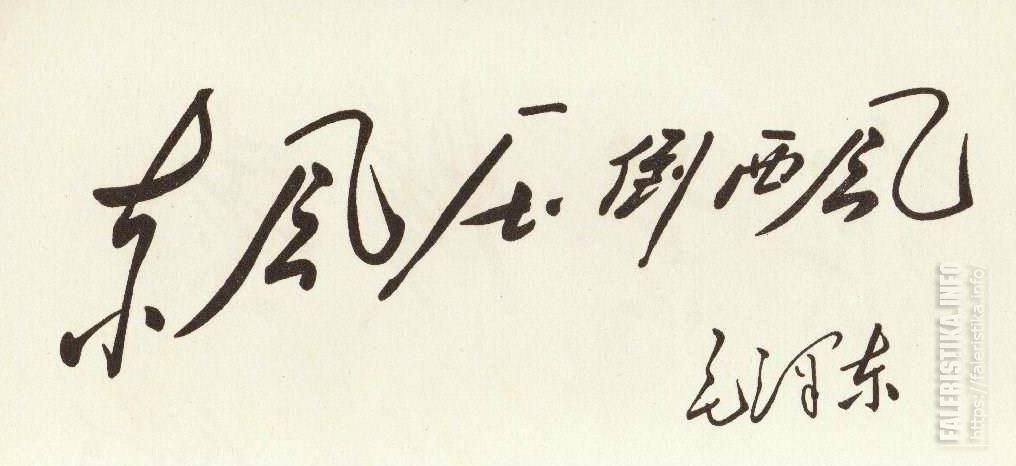 东风压倒西风
毛泽东
FALERISTIKA.INFO
https://faleristika.info